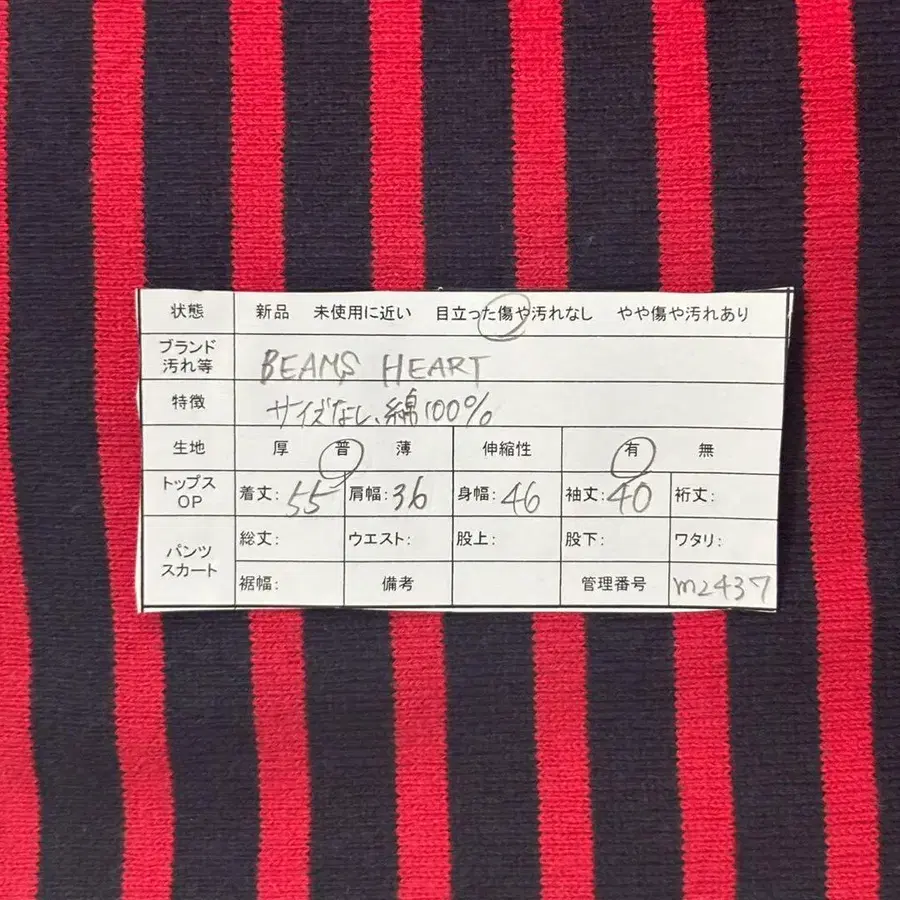 状態 新品 未使用に近い 目立った傷や汚れなし やや傷や汚れあり
ブランド
汚れ等 BEAMS HEART
特徴 サイズなし、綿100%
生地 厚 普 薄 伸縮性 有 無
トップス
OP 着丈:55 肩幅:36 身幅:46 袖丈:40 裄丈:
パンツ
スカート 総丈: ウエスト: 股上: 股下: ワタリ:
裾幅: 備考 管理番号 m2437